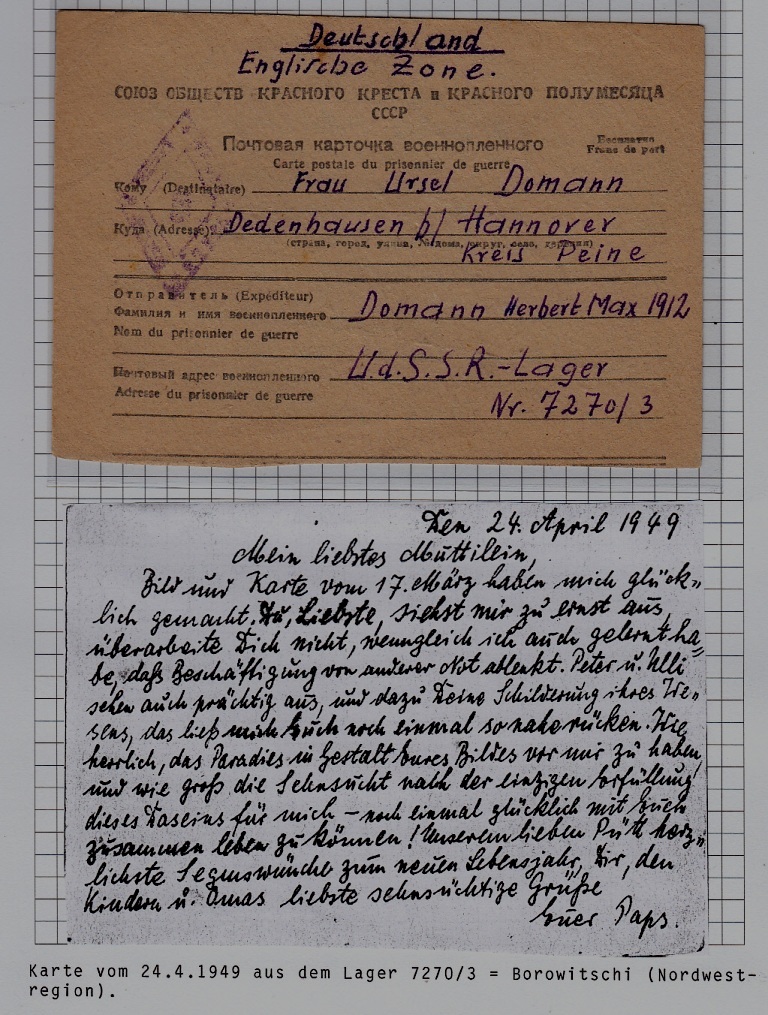 Deutschland
Englische Zone.
СОЮЗ ОБЩЕСТВ КРАСНОГО КРЕСТА и КРАСНОГО ПОЛУМЕСЯЦА
СССР
Почтовая карточка военнопленного
Бесплатно
Carte postale du prisonnier de guerre
Franc de port
Кому (Destinataire) Frau Ursel Domann
Куда (Adresse) Dedenhausen b/ Hannover
(страна, город, улица, № дома, округ, село, деревня)
Kreis Peine
Отправитель (Expéditeur)
Фамилия и имя военнопленного Domann Herbert Max 1912
Nom du prisonnier de guerre
Почтовый адрес военнопленного U.d.S.S.R.-Lager
Adresse du prisonnier de guerre
Nr. 7270/3
Den 24. April 1949
Mein liebstes Muttilein,
Bild und Karte vom 17. März haben mich glück-
lich gemacht. Du, Liebste, siehst mir zu ernst aus,
überarbeite Dich nicht, wenngleich ich auch gelernt ha-
be, daß Beschäftigung von anderer Not ablenkt. Peter u. Ulli
sehen auch prächtig aus, und dazu Deine Schilderung ihres We-
sens, das ließ mich Euch noch einmal so nahe rücken. Wie
herrlich, das Paradies in Gestalt Eures Bildes vor mir zu haben,
und wie groß die Sehnsucht nach der einzigen Erfüllung
dieses Daseins für mich – noch einmal glücklich mit Euch
zusammen leben zu können! Unserem lieben Pütt herz-
lichste Segenswünsche zum neuen Lebensjahr, Dir, den
Kindern u. Omas liebste sehnsüchtige Grüße
Euer Paps.
Karte vom 24.4.1949 aus dem Lager 7270/3 = Borowitschi (Nordwest-
region).